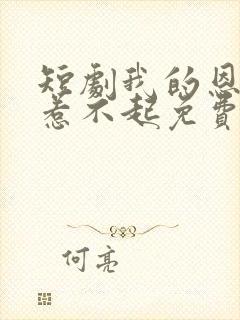 短劇我的恩
惹不起免費
何亮